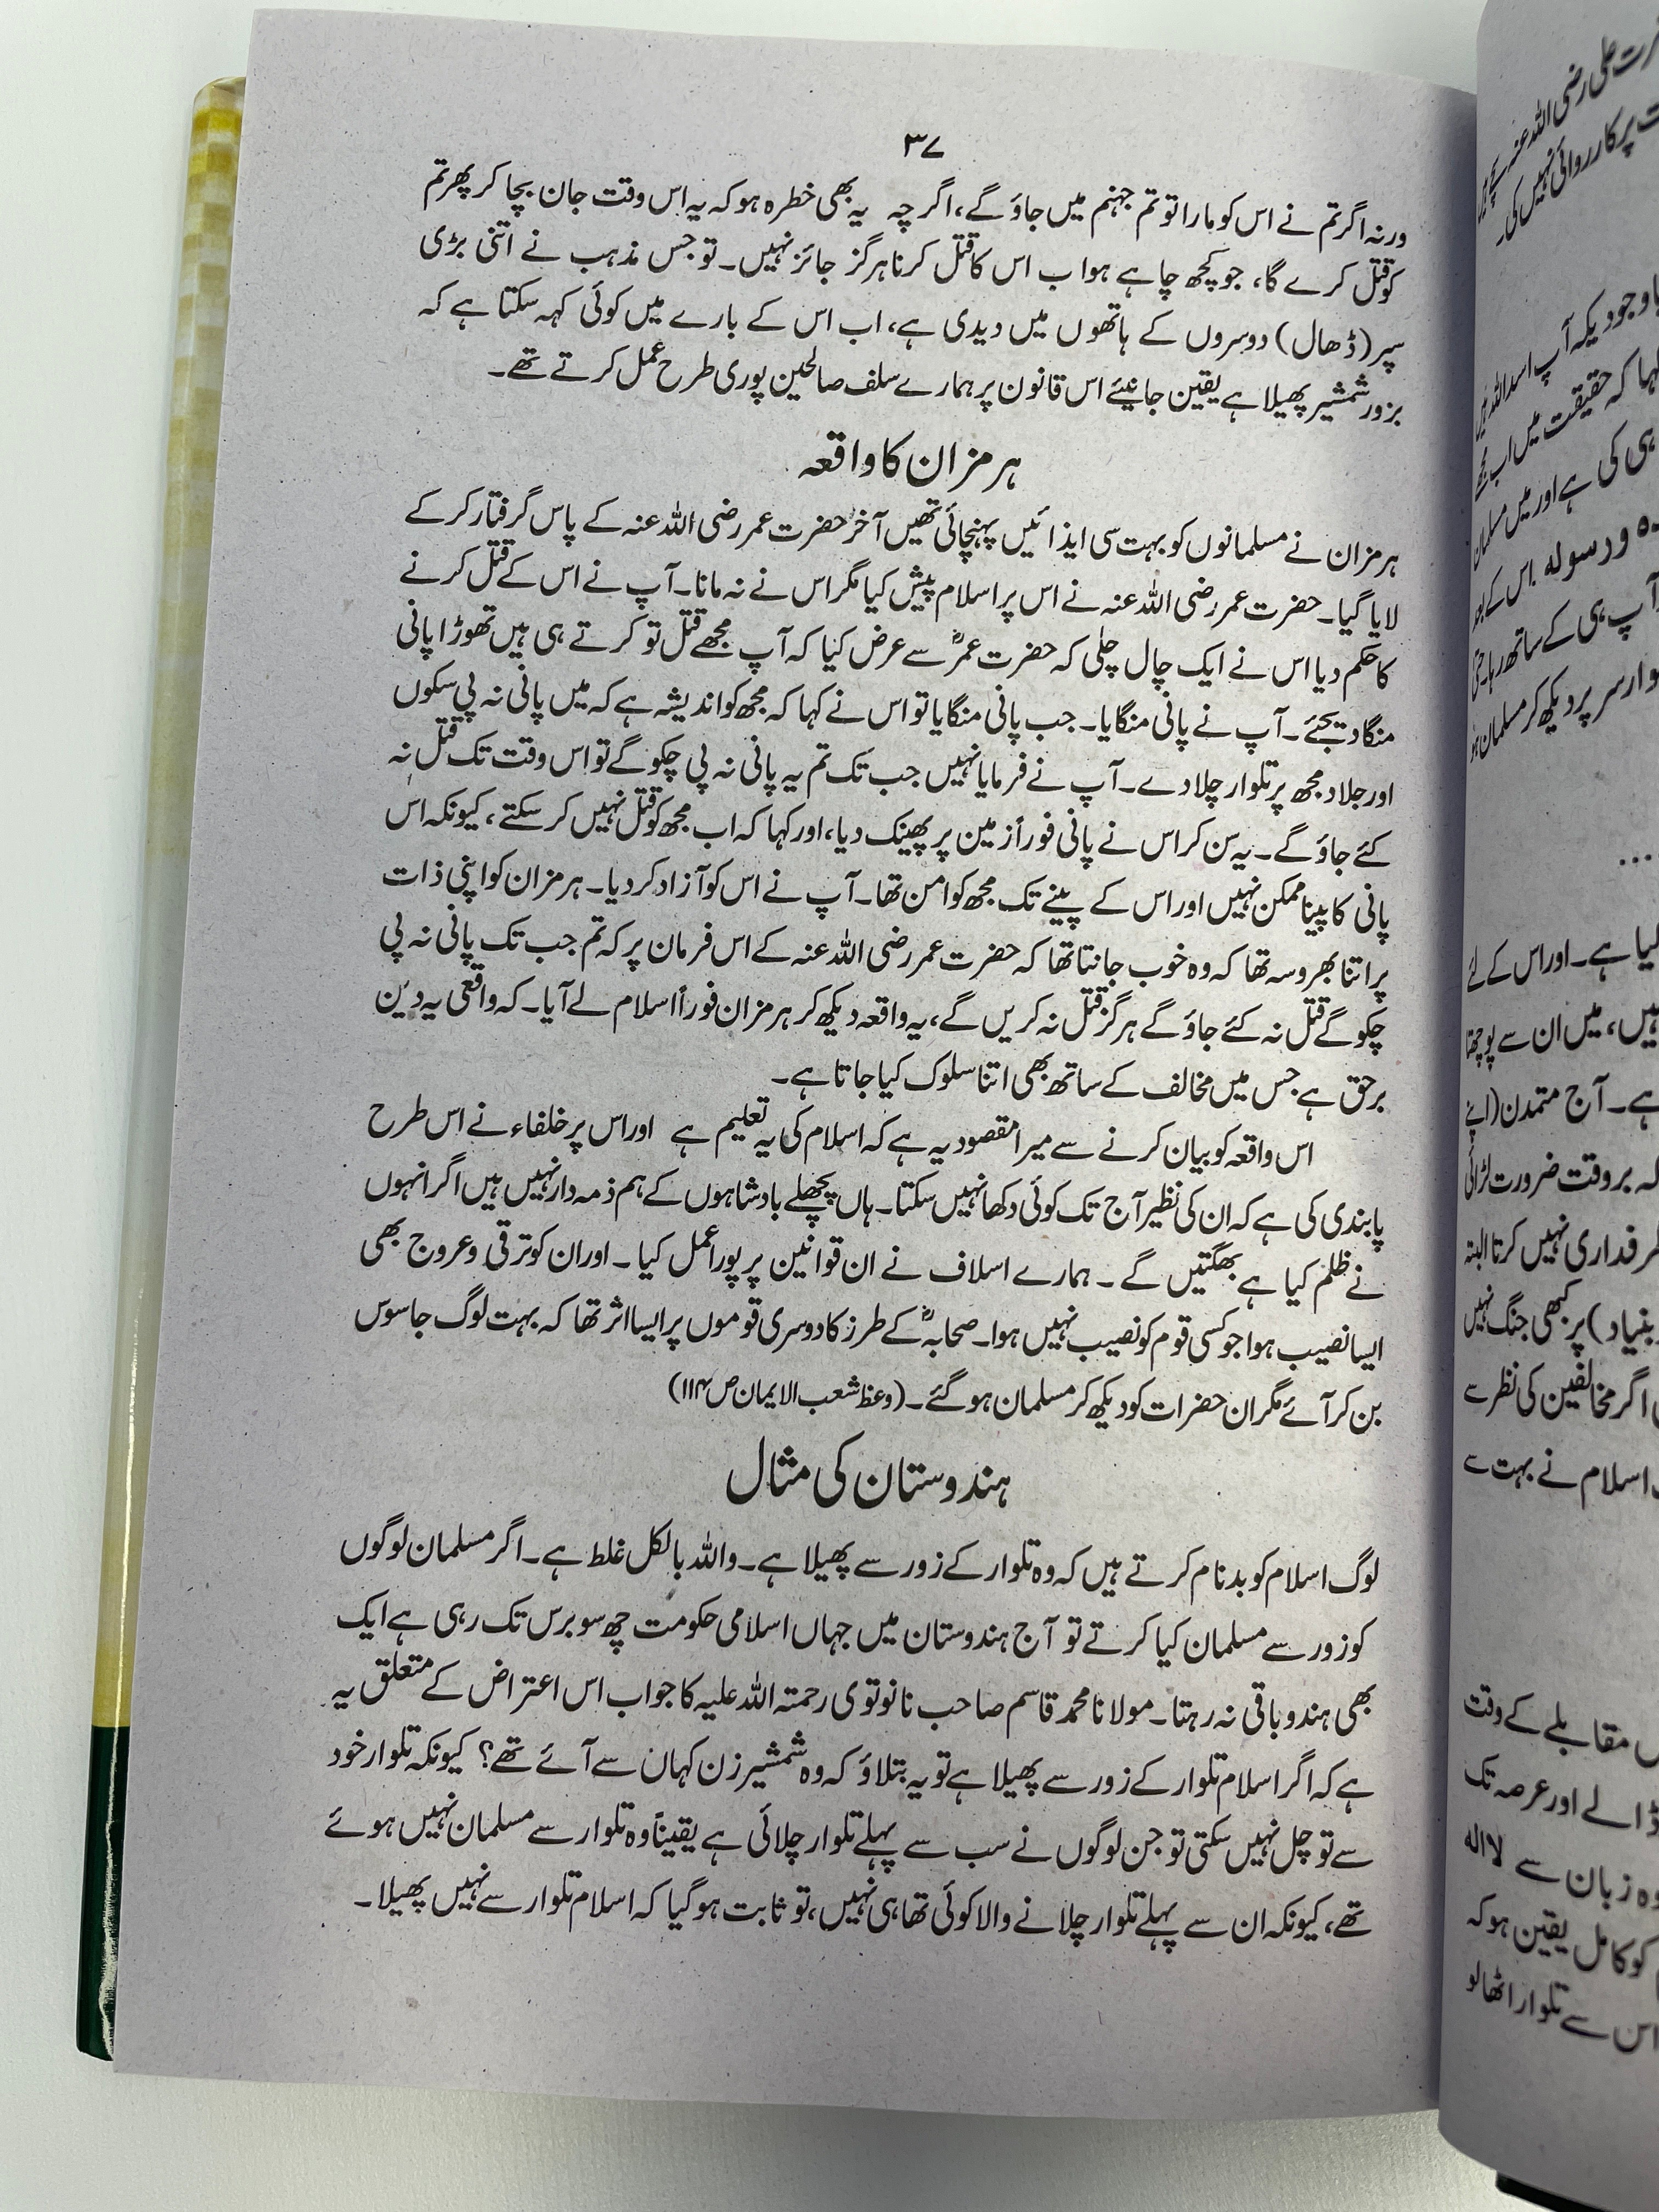 ۳۷
ورنہ اگر تم نے اس کو مارا تو تم جہنم میں جاؤ گے، اگر چہ یہ بھی خطرہ ہو کہ یہ اس وقت جان بچا کر پھر تم
کو قتل کرے گا، جو کچھ چاہے ہوا ب اس کا قتل کرنا ہرگز جائز نہیں۔ تو جس مذہب نے اتنی بڑی
سپر (ڈھال) دوسروں کے ہاتھوں میں دیدی ہے، اب اس کے بارے میں کوئی کہہ سکتا ہے کہ
بزور شمشیر پھیلا ہے یقین جانیئے اس قانون پر ہمارے سلف صالحین پوری طرح عمل کرتے تھے۔
ہرمزان کا واقعہ
ہرمزان نے مسلمانوں کو بہت سی ایذائیں پہنچائی تھیں آخر حضرت عمر رضی اللہ عنہ کے پاس گرفتار کر کے
لایا گیا۔ حضرت عمر رضی اللہ عنہ نے اس پر اسلام پیش کیا مگر اس نے نہ مانا۔ آپ نے اس کے قتل کرنے
کا حکم دیا اس نے ایک چال چلی کہ حضرت عمرؓ سے عرض کیا کہ آپ مجھے قتل تو کرتے ہی ہیں تھوڑا پانی
منگا دیجئے۔ آپ نے پانی منگایا۔ جب پانی منگایا تو اس نے کہا کہ مجھ کو اندیشہ ہے کہ میں پانی نہ پی سکوں
اور جلاد مجھ پر تلوار چلا دے۔ آپ نے فرمایا نہیں جب تک تم یہ پانی نہ پی چکو گے تو اس وقت تک قتل نہ
کئے جاؤ گے۔ یہ سن کر اس نے پانی فوراً زمین پر پھینک دیا، اور کہا کہ اب مجھ کو قتل نہیں کر سکتے، کیونکہ اس
پانی کا پینا ممکن نہیں اور اس کے پینے تک مجھ کو امن تھا۔ آپ نے اس کو آزاد کر دیا۔ ہرمزان کو اپنی ذات
پر اتنا بھروسہ تھا کہ وہ خوب جانتا تھا کہ حضرت عمر رضی اللہ عنہ کے اس فرمان پر کہ تم جب تک پانی نہ پی
چکو گے قتل نہ کئے جاؤ گے ہرگز قتل نہ کریں گے، یہ واقعہ دیکھ کر ہرمزان فوراً اسلام لے آیا۔ کہ واقعی یہ دین
برحق ہے جس میں مخالف کے ساتھ بھی اتنا سلوک کیا جاتا ہے۔
اس واقعہ کو بیان کرنے سے میرا مقصود یہ ہے کہ اسلام کی یہ تعلیم ہے اور اس پر خلفاء نے اس طرح
پابندی کی ہے کہ ان کی نظیر آج تک کوئی دکھا نہیں سکتا۔ ہاں پچھلے بادشاہوں کے ہم ذمہ دار نہیں ہیں اگر انہوں
نے ظلم کیا ہے بھگتیں گے۔ ہمارے اسلاف نے ان قوانین پر پورا عمل کیا۔ اور ان کو ترقی و عروج بھی
ایسا نصیب ہوا جو کسی قوم کو نصیب نہیں ہوا۔ صحابہؓ کے طرز کا دوسری قوموں پر ایسا اثر تھا کہ بہت لوگ جاسوس
بن کر آئے مگر ان حضرات کو دیکھ کر مسلمان ہو گئے۔ (وعظ شعب الایمان ص ۱۱۴)
ہندوستان کی مثال
لوگ اسلام کو بدنام کرتے ہیں کہ وہ تلوار کے زور سے پھیلا ہے۔ واللہ بالکل غلط ہے۔ اگر مسلمان لوگوں
کو زور سے مسلمان کیا کرتے تو آج ہندوستان میں جہاں اسلامی حکومت چھ سو برس تک رہی ہے ایک
بھی ہندو باقی نہ رہتا۔ مولانا محمد قاسم صاحب نانوتوی رحمتہ اللہ علیہ کا جواب اس اعتراض کے متعلق یہ
ہے کہ اگر اسلام تلوار کے زور سے پھیلا ہے تو یہ بتلاؤ کہ وہ شمشیر زن کہان سے آئے تھے؟ کیونکہ تلوار خود
سے تو چل نہیں سکتی تو جن لوگوں نے سب سے پہلے تلوار چلائی ہے یقیناً وہ تلوار سے مسلمان نہیں ہوئے
تھے، کیونکہ ان سے پہلے تلوار چلانے والا کوئی تھا ہی نہیں، تو ثابت ہو گیا کہ اسلام تلوار سے نہیں پھیلا۔
رضی اللہ عنہ
پر کارروائی نہیں کی۔
باوجودیکہ آپ اسد اللہ
کہا کہ حقیقت میں اب
ہی کی ہے اور میں مسلمان
ورسولہ اس کے بعد
آپ ہی کے ساتھ رہا۔
سر پر دیکھ کر مسلمان
...
لیا ہے۔ اور اس کے لئے
ہیں، میں ان سے پوچھتا
ہے۔ آج متمدن (اپنے
کہ بروقت ضرورت لڑائی
طرفداری نہیں کرتا البتہ
بنیاد) پر کبھی جنگ نہیں
اگر مخالفین کی نظر سے
اسلام نے بہت سے
مقابلے کے وقت
ڈالے اور عرصہ تک
وہ زبان سے لا الہ
کو کامل یقین ہو کہ
اس سے تلوار اٹھا لو